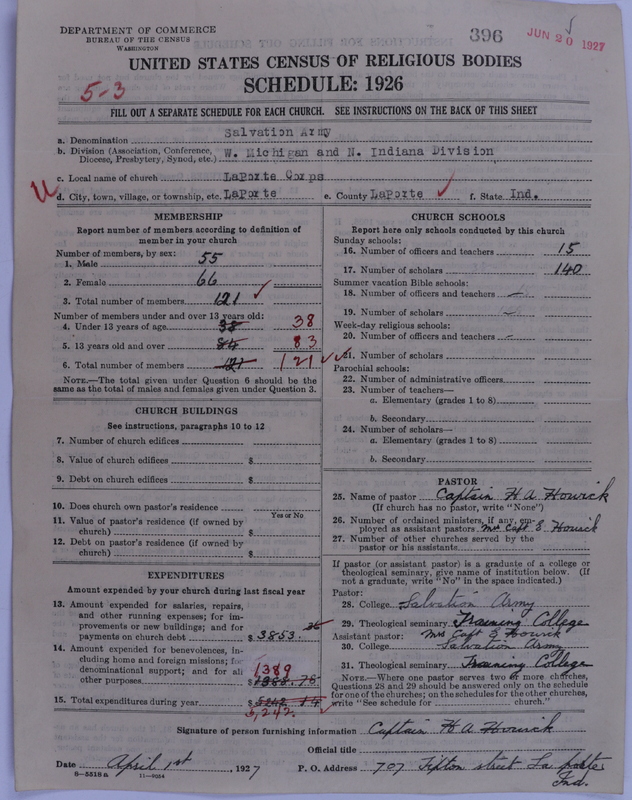 DEPARTMENT OF COMMERCE
BUREAU OF THE CENSUS
WASHINGTON
396
JUN 20 1927
UNITED STATES CENSUS OF RELIGIOUS BODIES
SCHEDULE: 1926
5-3
FILL OUT A SEPARATE SCHEDULE FOR EACH CHURCH. SEE INSTRUCTIONS ON THE BACK OF THIS SHEET
a. Denomination Salvation Army
b. Division (Association, Conference, Diocese, Presbytery, Synod, etc.) W. Michigan and N. Indiana Division
c. Local name of church LaPorte Corps
d. City, town, village, or township, etc. LaPorte e. County LaPorte f. State Ind.
MEMBERSHIP
Report number of members according to definition of
member in your church
Number of members, by sex:
1. Male 55
2. Female 66
3. Total number of members 121
Number of members under and over 13 years old:
4. Under 13 years of age 38 38
5. 13 years old and over 84 83
6. Total number of members 121 121
NOTE.—The total given under Question 6 should be
same as the total of males and females given under Question 3.
CHURCH BUILDINGS
See instructions, paragraphs 10 to 12
7. Number of church edifices
8. Value of church edifices $
9. Debt on church edifices $
10. Does church own pastor's residence
Yes or No
11. Value of pastor's residence (if owned by
church) $
12. Debt on pastor's residence (if owned by
church) $
EXPENDITURES
Amount expended by your church during last fiscal year
13. Amount expended for salaries, repairs,
and other running expenses; for im-
provements or new buildings; and for
payments on church debt $ 3853.
14. Amount expended for benevolences, in-
cluding home and foreign missions; for
denominational support; and for all
other purposes 1389
15. Total expenditures during year $
5,242.
CHURCH SCHOOLS
Report here only schools conducted by this church
Sunday schools:
16. Number of officers and teachers 15
17. Number of scholars 140
Summer vacation Bible schools:
18. Number of officers and teachers
19. Number of scholars
Week-day religious schools:
20. Number of officers and teachers
21. Number of scholars
Parochial schools:
22. Number of administrative officers
23. Number of teachers—
a. Elementary (grades 1 to 8)
b. Secondary
24. Number of scholars—
a. Elementary (grades 1 to 8)
b. Secondary
PASTOR
25. Name of pastor Captain H A Howick
(If church has no pastor, write "None")
26. Number of ordained ministers, if any, em-
ployed as assistant pastors Mrs Capt E Howick
27. Number of other churches served by the
pastor or his assistants
If pastor (or assistant pastor) is a graduate of a college or
theological seminary, give name of institution below. (If
not a graduate, write "No" in the space indicated.)
Pastor:
28. College Salvation Army
29. Theological seminary Training College
Assistant pastor: Mrs Capt E Howick
30. College Salvation Army
31. Theological seminary Training College
NOTE.—Where one pastor serves two or more churches,
Questions 28 and 29 should be answered only on the schedule
for one of the churches; on the schedules for the other churches,
write "See schedule for church."
Signature of person furnishing information Captain H A Howick
Official title
Date April 1st, 1927 P. O. Address 707 Tipton street La porte
Ind.
8-5518a 11-9054